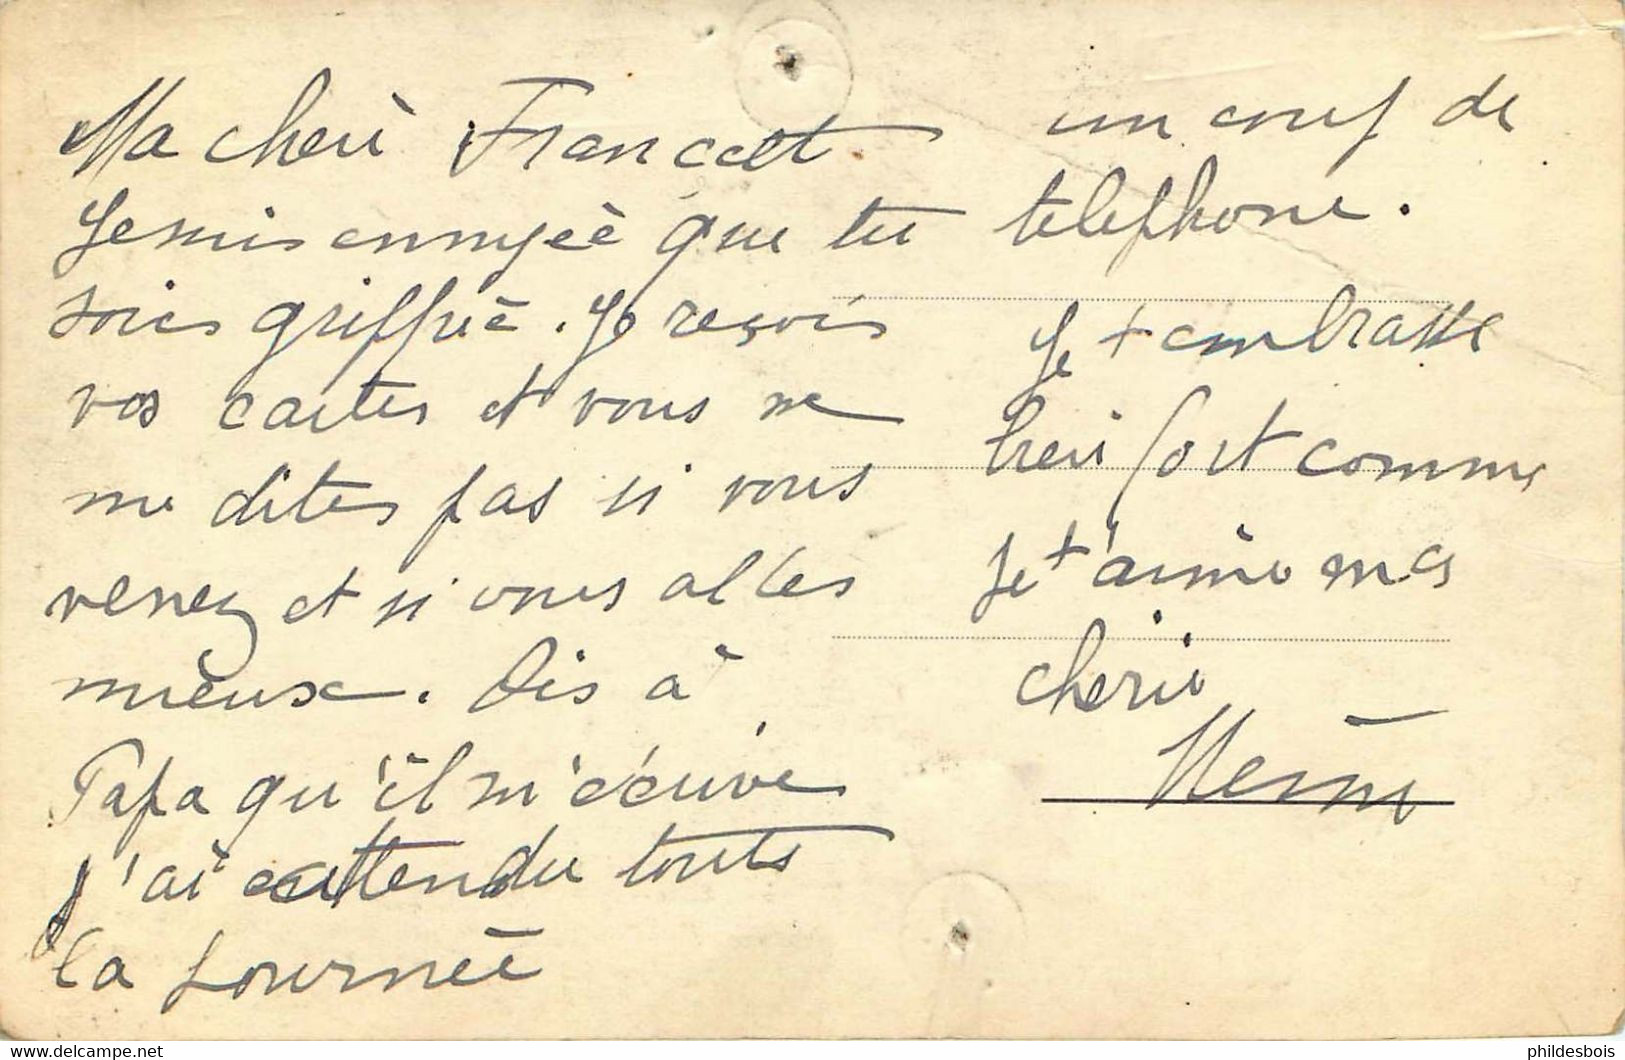 Ma cheri Francett
Je suis ennuyèè que tu
soies grippeè. Je reçois
vos cartes et vous ne
me dites pas si vous
venez et si vous alles
mieux. Dis à
Papa qu'il m'écrive
j'ai attendu touts
la journèè
un coup de
telephone.
Je t embrasse
bien fort comme
Je t'aime ma
cherie
phildesbois